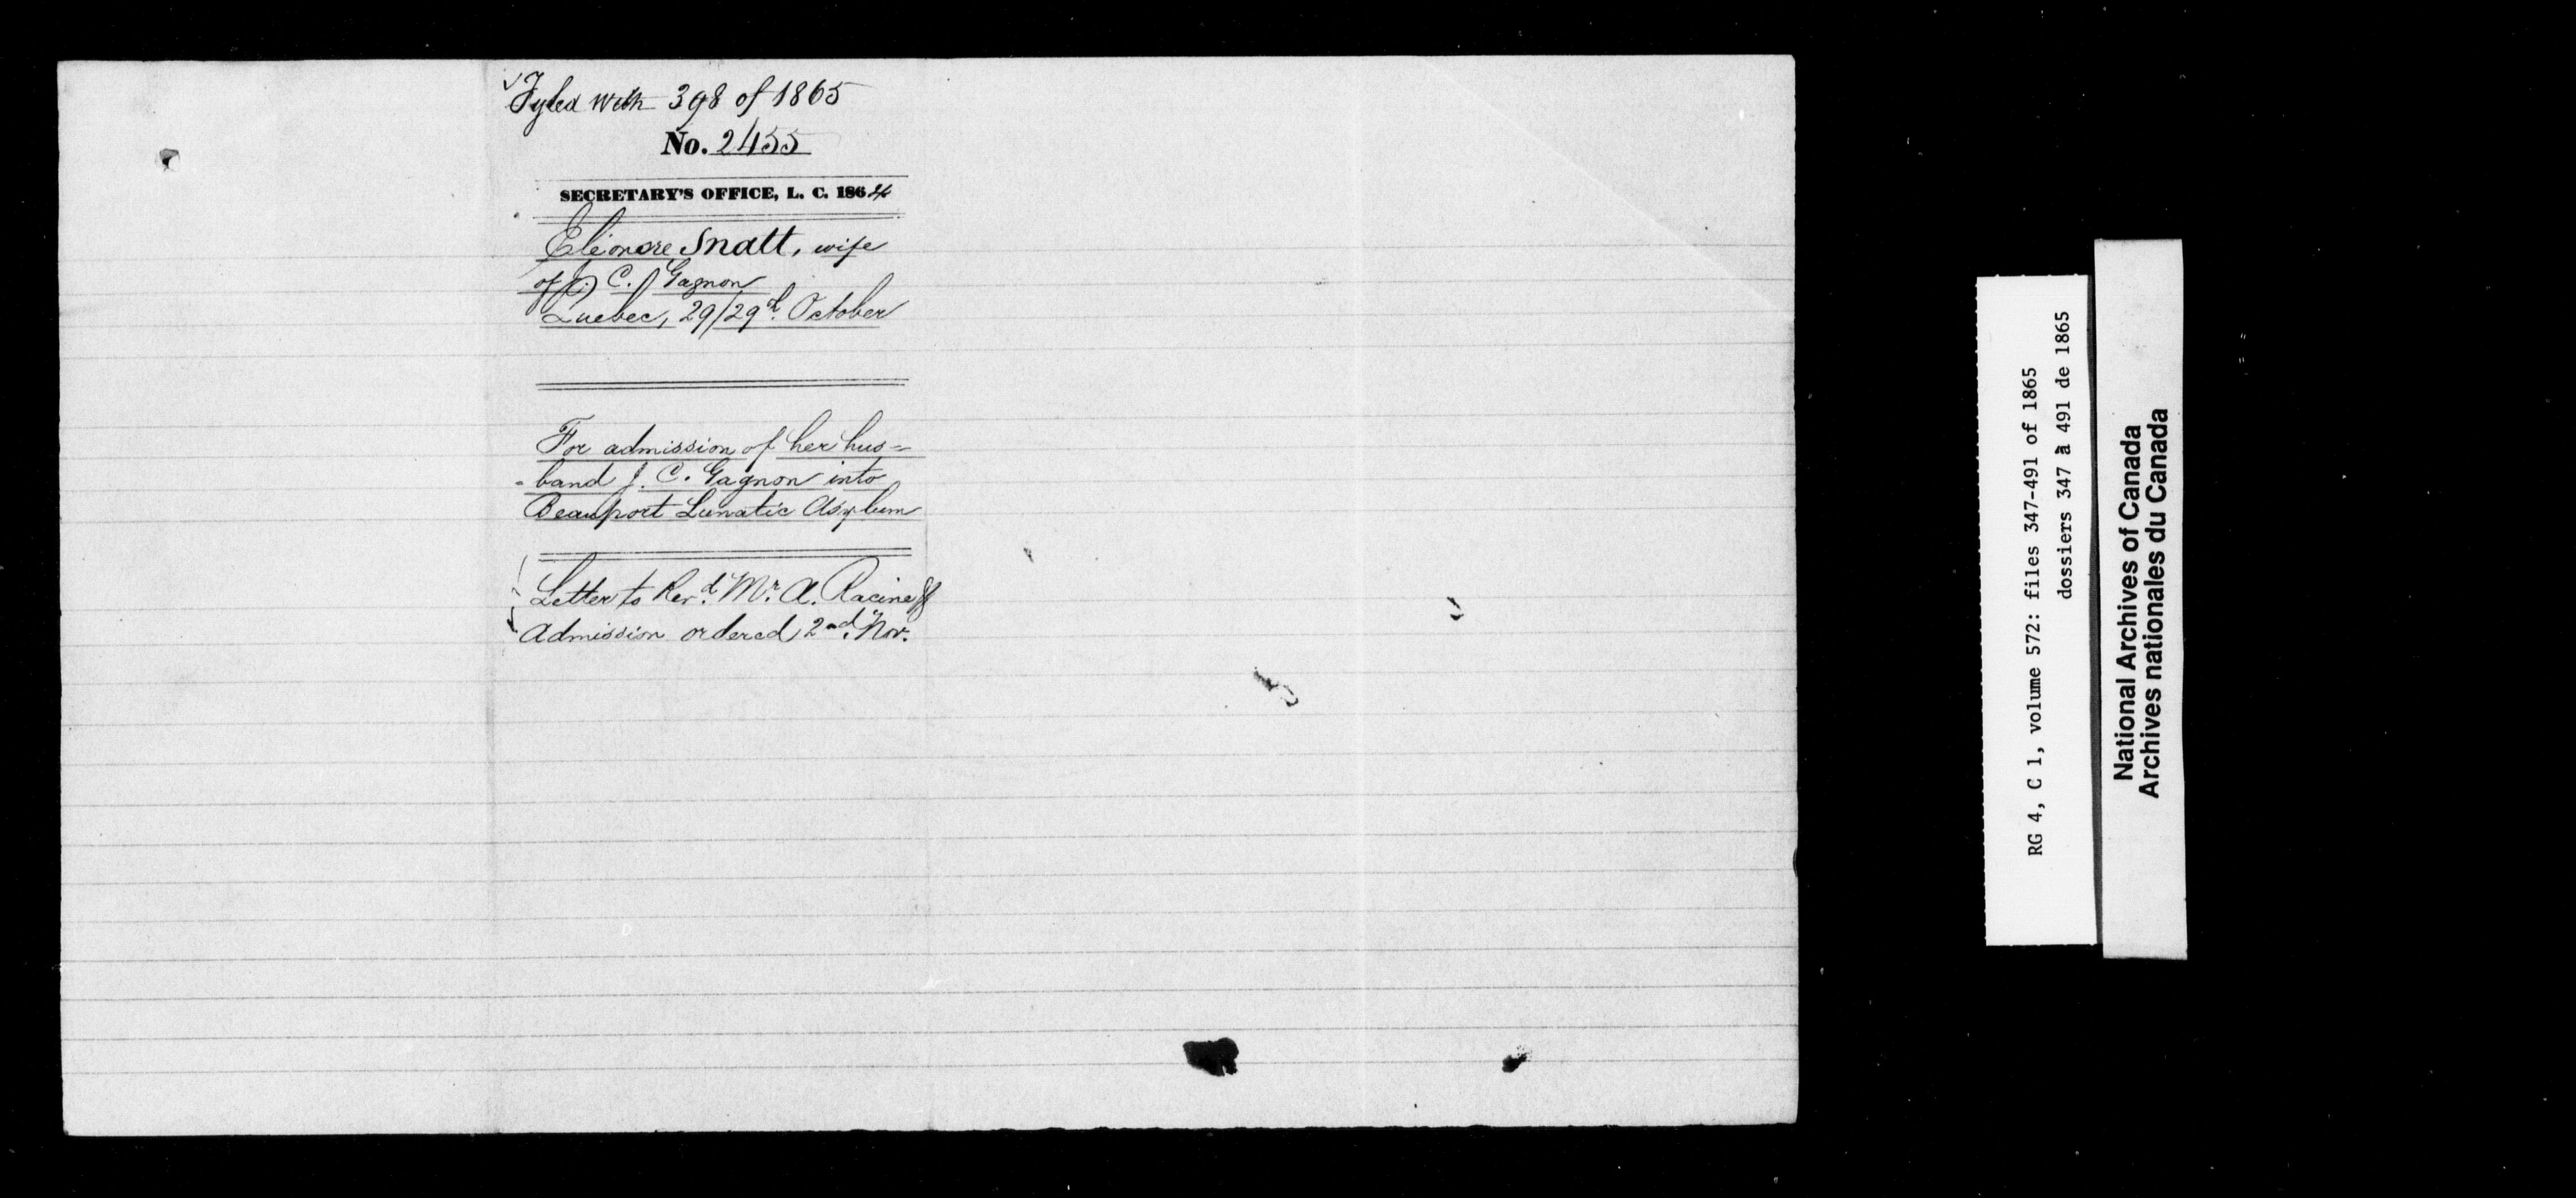 Fyled with 398 of 1865
No. 2455
SECRETARY'S OFFICE, L. C. 1864
Eléonore Snatt, wife
of (J.) C. Gagnon
Quebec, 29/29th October
For admission of her hus-
-band J. C. Gagnon into
Beauport Lunatic Asylum
Letter to Revd. Mr. A. Racine &
Admission ordered 2nd. Nov.
RG 4, C 1, volume 572: files 347-491 of 1865
dossiers 347 à 491 de 1865
National Archives of Canada
Archives nationales du Canada